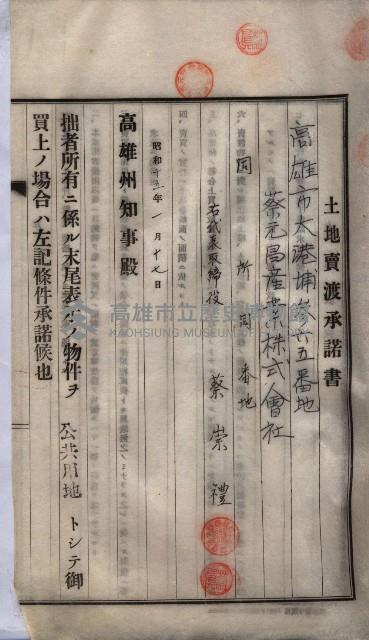 土地賣渡承諾書
高雄市大港埔參六五番地
蔡元昌產業株式會社
同所同番地
右代表取締役 蔡崇禮
昭和十三年一月十七日
高雄州知事殿
拙者所有ニ係ル末尾表示ノ物件ヲ 公共用地 トシテ御
買上ノ場合ハ左記條件承諾候也
高雄市立歷史博物館
KAOHSIUNG MUSEUM OF